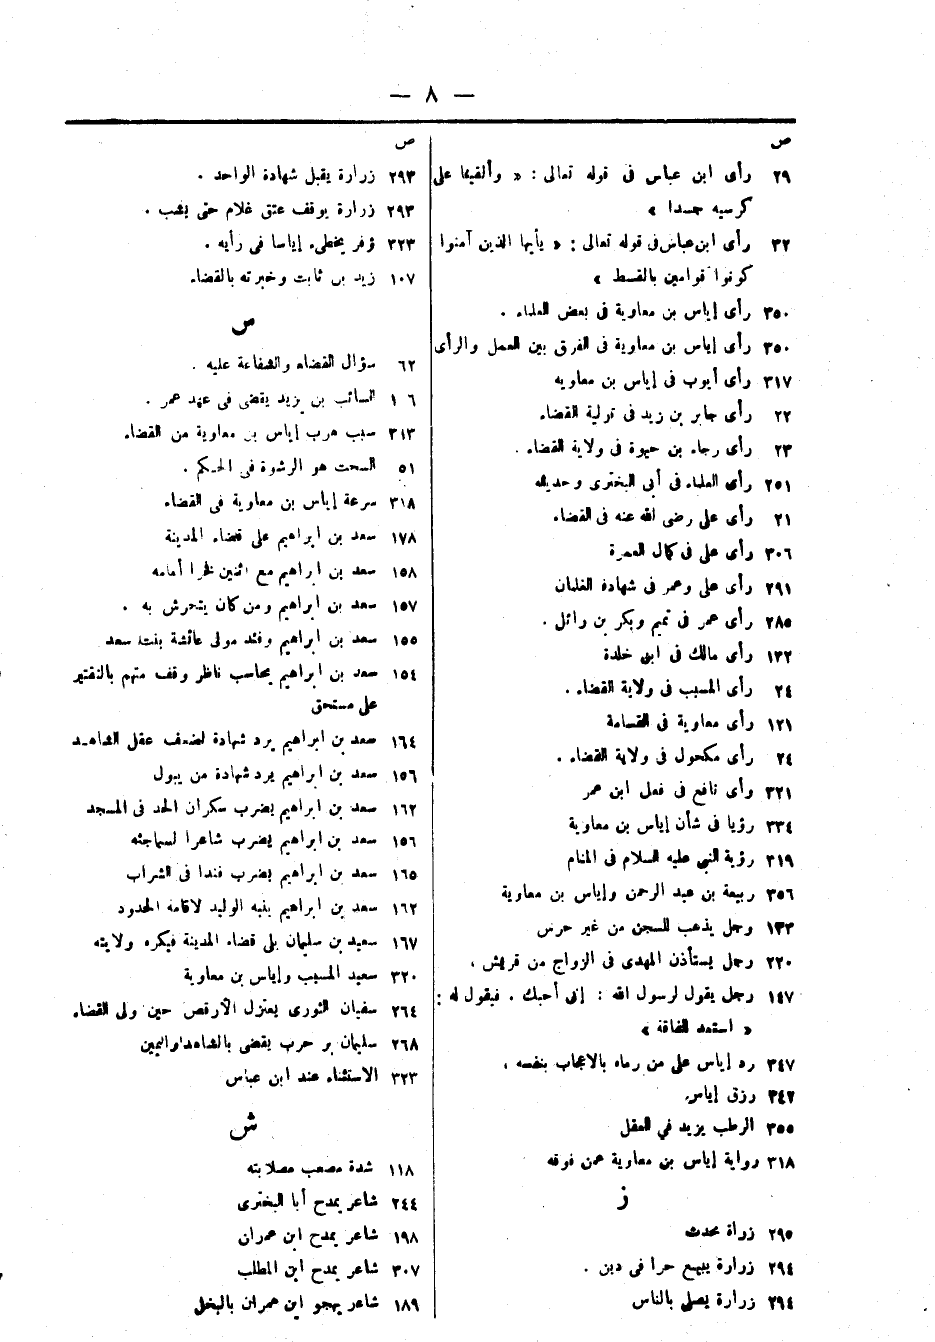 — ٨ —
ص
٢٩ رأى ابن عباس فى قوله تعالى : « وألقينا على
كرسيه جسدا »
٣٢ رأى ابن عباس فى قوله تعالى : « يأيها الذين آمنوا
كونوا قوامين بالقسط »
٣٥٠ رأى إياس بن معاوية فى بعض العلماء .
٣٥٠ رأى إياس بن معاوية فى الفرق بين العمل والرأى
٣١٧ رأى أيوب فى إياس بن معاويه
٢٢ رأى جابر بن زيد فى تولية القضاء
٢٣ رأى رجاء بن حيوة فى ولاية القضاء .
٢٥١ رأى العلماء فى أبى البخترى وحديثه
٢١ رأى على رضى الله عنه فى القضاء
٣٠٦ رأى على فى كمال العمرة
٢٩١ رأى على وعمر فى شهادة الغلمان
٢٨٥ رأى عمر فى تميم وبكر بن وائل .
١٣٢ رأى مالك فى ابن خلدة
٢٤ رأى المسيب فى ولاية القضاء .
١٢١ رأى معاوية فى القسامة
٢٤ رأى مكحول فى ولاية القضاء .
٣٢١ رأى نافع فى فعل ابن عمر
٣٣٤ رؤيا فى شأن إياس بن معاوية
٣١٩ رؤية النبى عليه السلام فى المنام
٣٥٦ ربيعة بن عبد الرحمن وإياس بن معاوية
١٣٣ رجل يذهب للسجن من غير حرس
٢٢٠ رجل يستأذن المهدى فى الزواج من قريش ،
١٤٧ رجل يقول لرسول الله : إنى أحبك . فيقول له :
« استعد للفاقة »
٣٤٧ رد إياس على من رماه بالاعجاب بنفسه ،
٣٤٢ رزق إياس
٣٥٥ الرطب يزيد في العقل
٣١٨ رواية إياس بن معاوية عمن فوقه
ز
٢٩٥ زراة محدث
٢٩٤ زرارة يبيع حرا فى دين .
٢٩٤ زرارة يصلى بالناس
ص
٢٩٣ زرارة يقبل شهادة الواحد .
٢٩٣ زرارة يوقف عتق غلام حتى يشب .
٣٢٣ زفر يخطىء إياسا فى رأيه .
١٠٧ زيد بن ثابت وخبرته بالقضاء
س
٦٢ سؤال القضاء والشفاعة عليه .
١٠٦ السائب بن يزيد يقضى فى عهد عمر .
٣١٣ سبب هرب إياس بن معاوية من القضاء
٥١ السحت هو الرشوة فى الحكم .
٣١٨ سرعة إياس بن معاوية فى القضاء
١٧٨ سعد بن ابراهيم على قضاء المدينة
١٥٨ سعد بن ابراهيم مع اثنين فخرا أمامه
١٥٧ سعد بن ابراهيم ومن كان يتحرش به .
١٥٥ سعد بن ابراهيم وفند مولى عائشة بنت سعد
١٥٤ سعد بن ابراهيم يحاسب ناظر وقف متهم بالتقتير
على مستحق
١٦٤ سعد بن ابراهيم يرد شهادة لضعف عقل الشاهد
١٥٦ سعد بن ابراهيم يرد شهادة من يبول
١٦٢ سعد بن ابراهيم يضرب سكران الحد فى المسجد
١٥٦ سعد بن ابراهيم يضرب شاعرا لسماجته
١٦٥ سعد بن ابراهيم يضرب فندا فى الشراب
١٦٢ سعد بن ابراهيم ينبه الوليد لاقامة الحدود
١٦٧ سعيد بن سليمان يلى قضاء المدينة فيكره ولايته
٣٢٠ سعيد المسيب وإياس بن معاوية
٢٦٤ سفيان الثورى يعتزل الأرقص حين ولى القضاء
٢٦٨ سليمان بن حرب يقضى بالشاهد واليمين
٣٢٣ الاستثناء عند ابن عباس
ش
١١٨ شدة مصعب وصلابته
٢٤٤ شاعر يمدح أبا البخترى
١٩٨ شاعر يمدح ابن عمران
٣٠٧ شاعر يمدح ابن المطلب
١٨٩ شاعر يهجو ابن عمران بالبخل